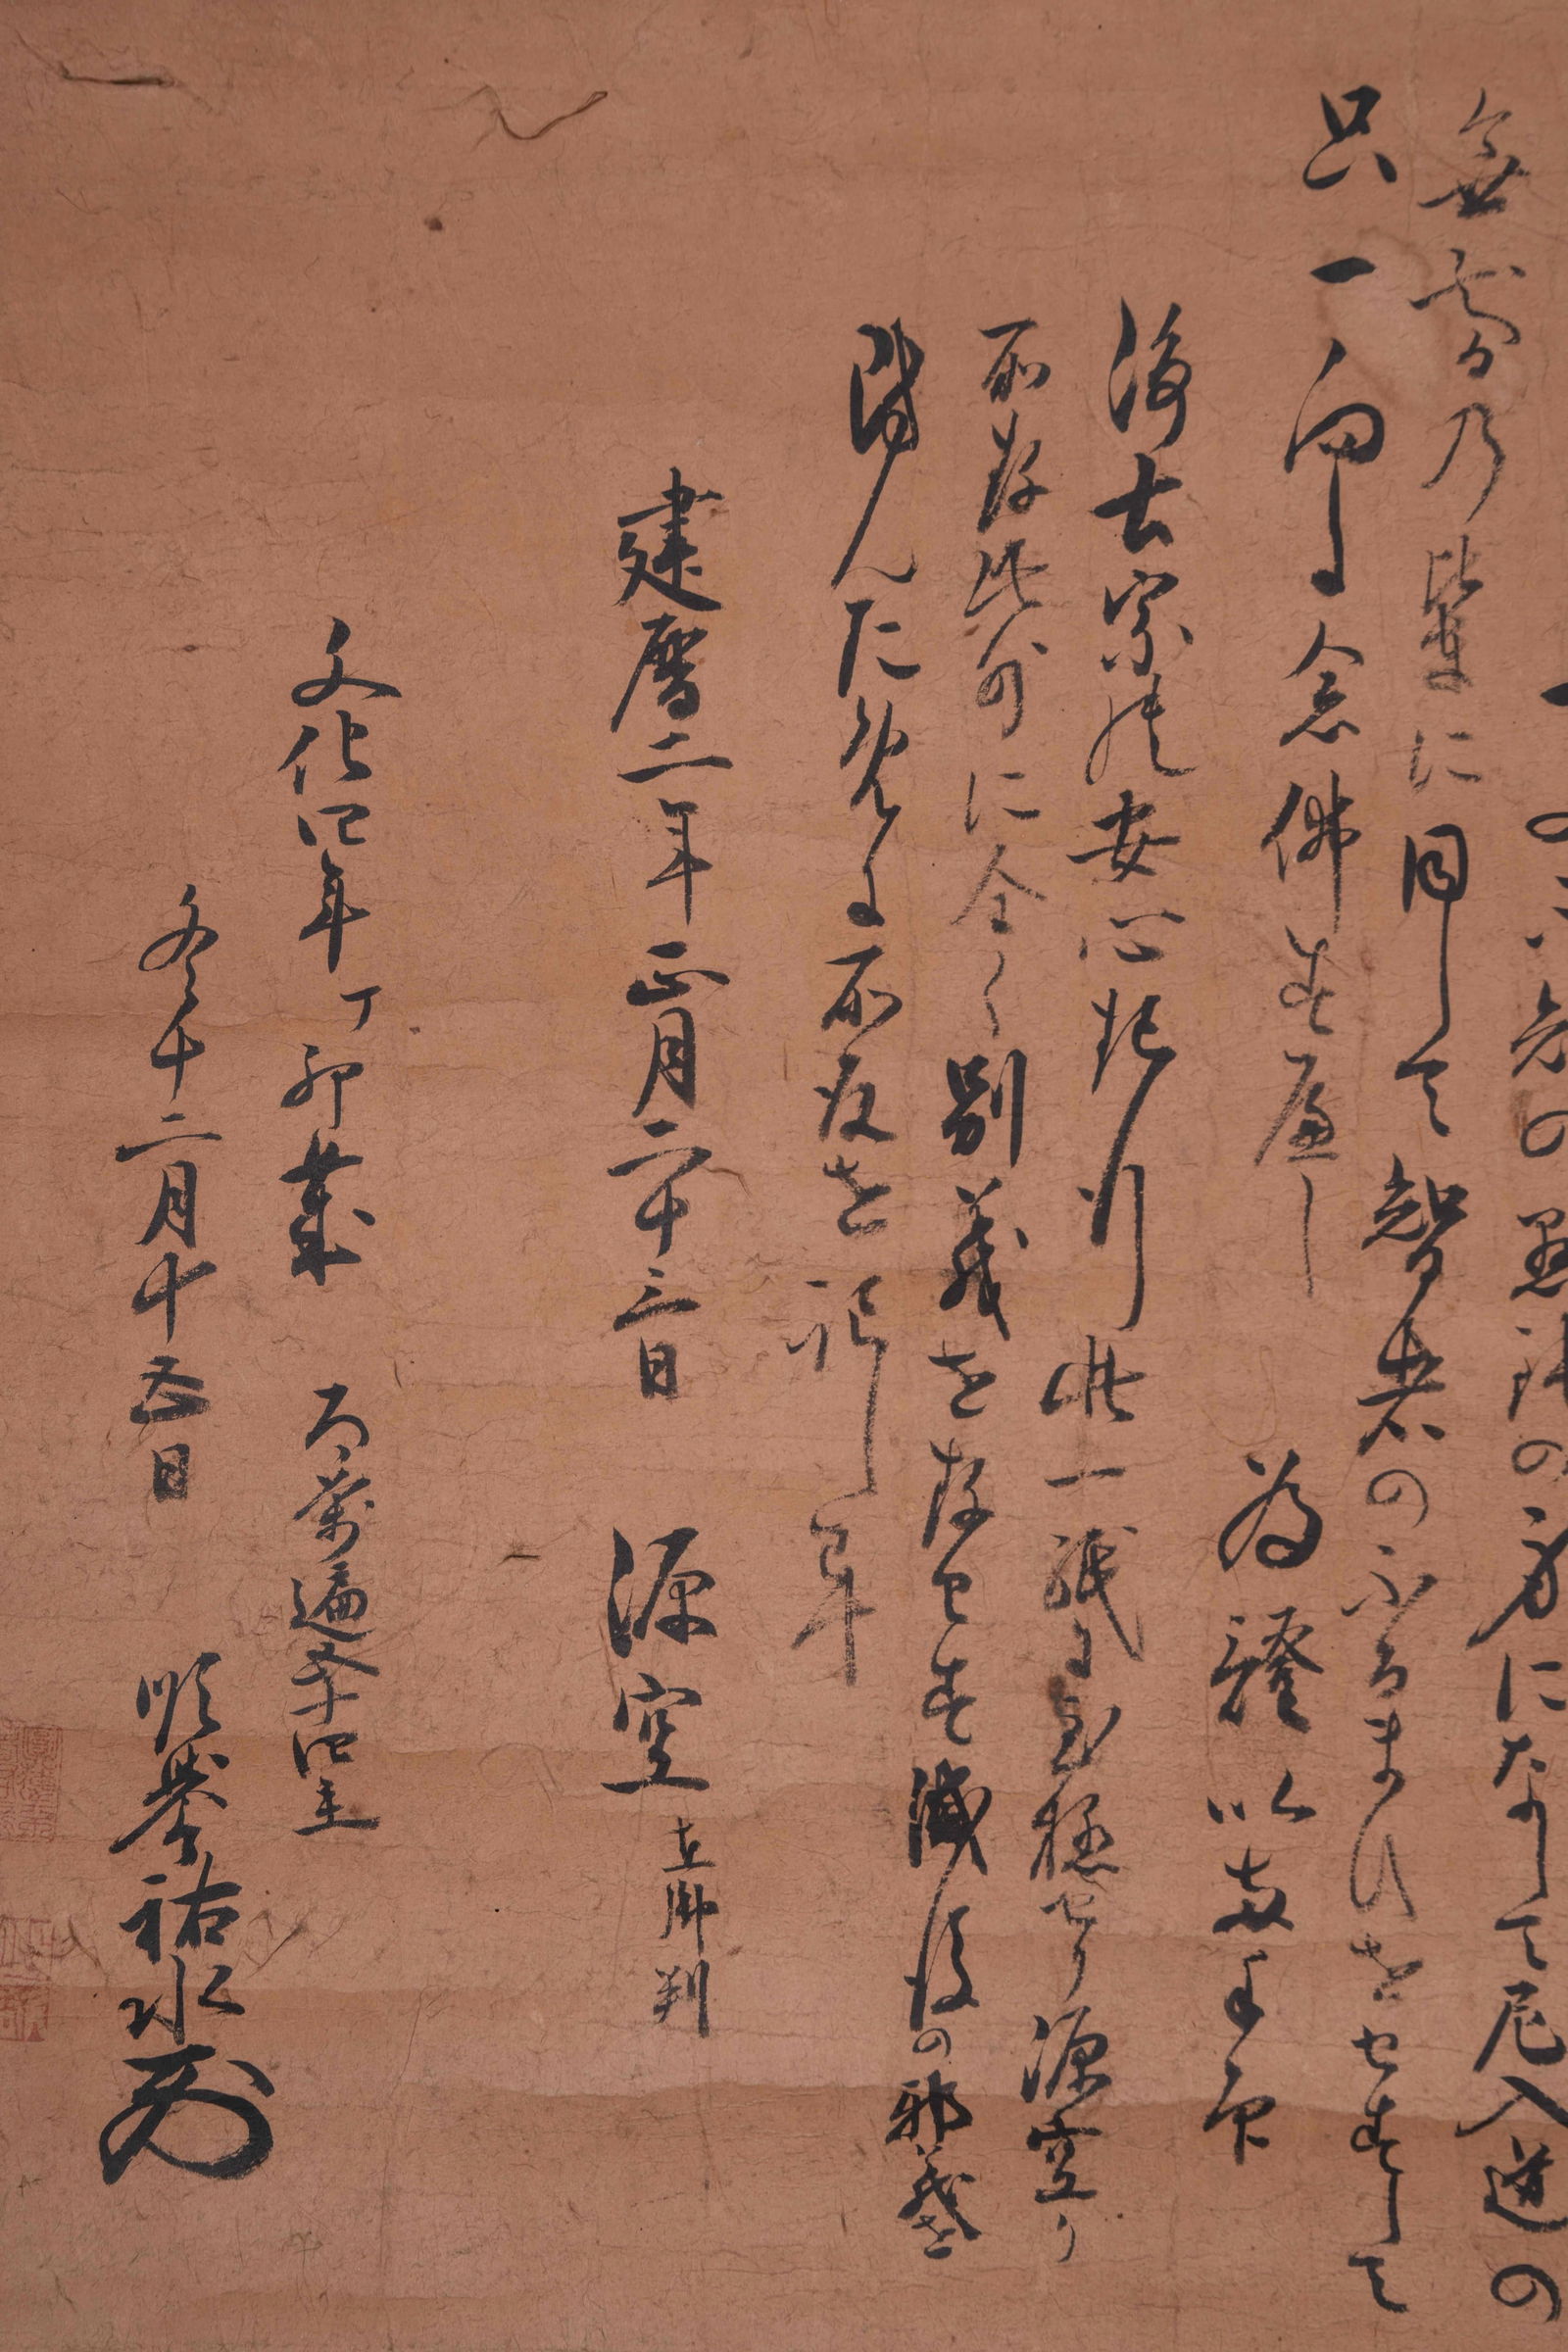 の愚鈍の身になして尼入道の
無智乃輩に同して智者のふるまひをせすして
只一向に念佛す遍し
為證以両手印
浄土宗能安心起行此一紙に至極せり源空か
所存此外に全く別義を存せす滅後の邪義を
防んために所存を記し畢
建暦二年正月二十三日 源空 在御判
文化四年丁卯歳 百萬遍五十四主
冬十二月十五日 順譽祐水